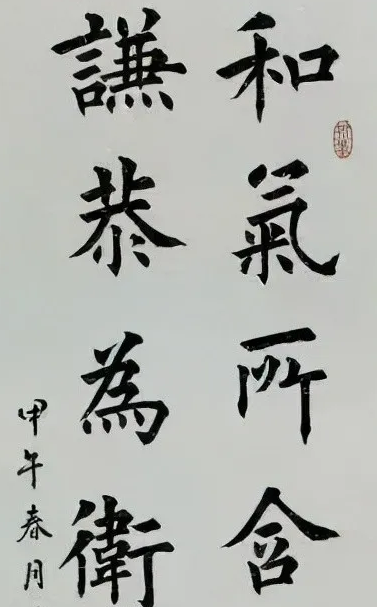 和氣所含
謙恭為衛
甲午春月